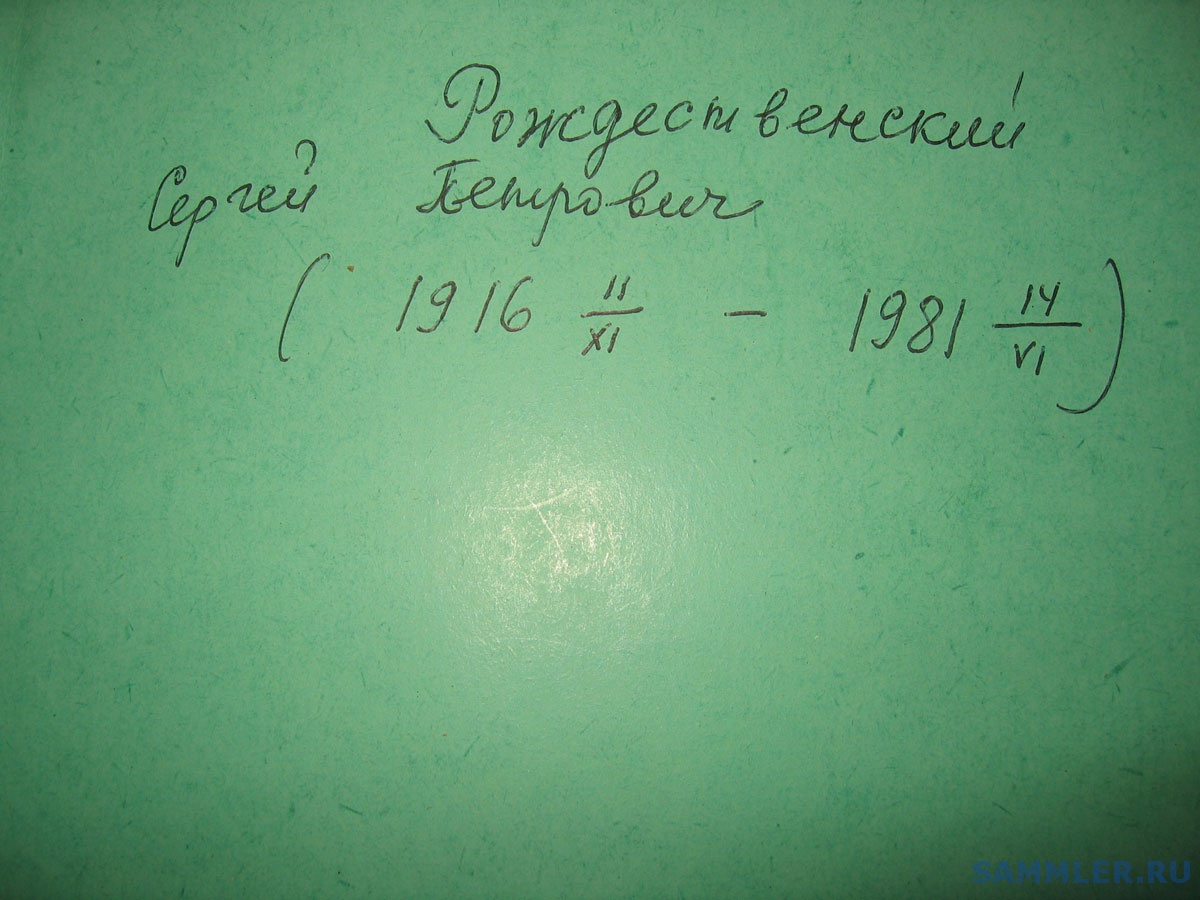 Рождественский
Сергей Петрович
( 1916 11/XI - 1981 14/VI )
SAMMLER.RU